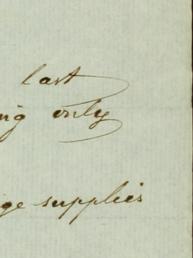 last
ing only
ge supplies